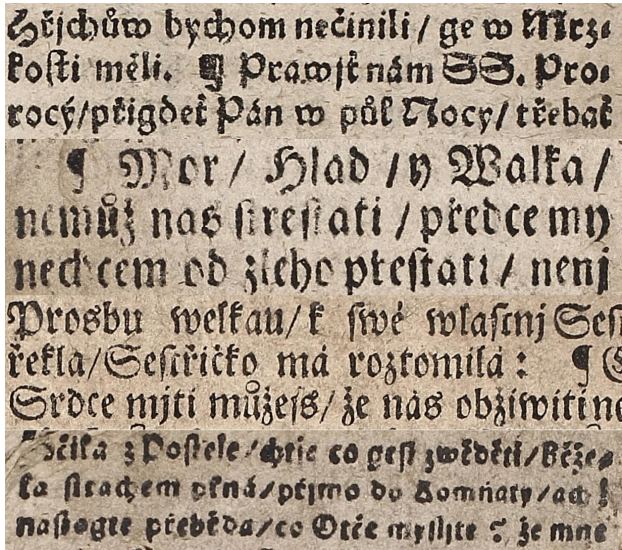 Hřjchůw bychom nečinili / ge w Mrz⸗
kosti měli. ¶ Prawjť nám SS. Pro⸗
rocý/přigdeť Pán w půl Nocy/ třebať
¶ Mor/ Hlad /y Walka /
nemůž nas strestati / předce my
nechcem od zleho přestati / nenj
Prosbu welkau/k swé wlastnj Ses
řekla/Sestřičko má roztomilá: ¶
Srdce mjti můžeſs/ že nás obžiwiti ne
z Postele/chtie co gest zwěděti/Běže⸗
ka strachem okná/přjmo do Komnaty/ach
nastogte přeběda/co Otče myslite ? že mne